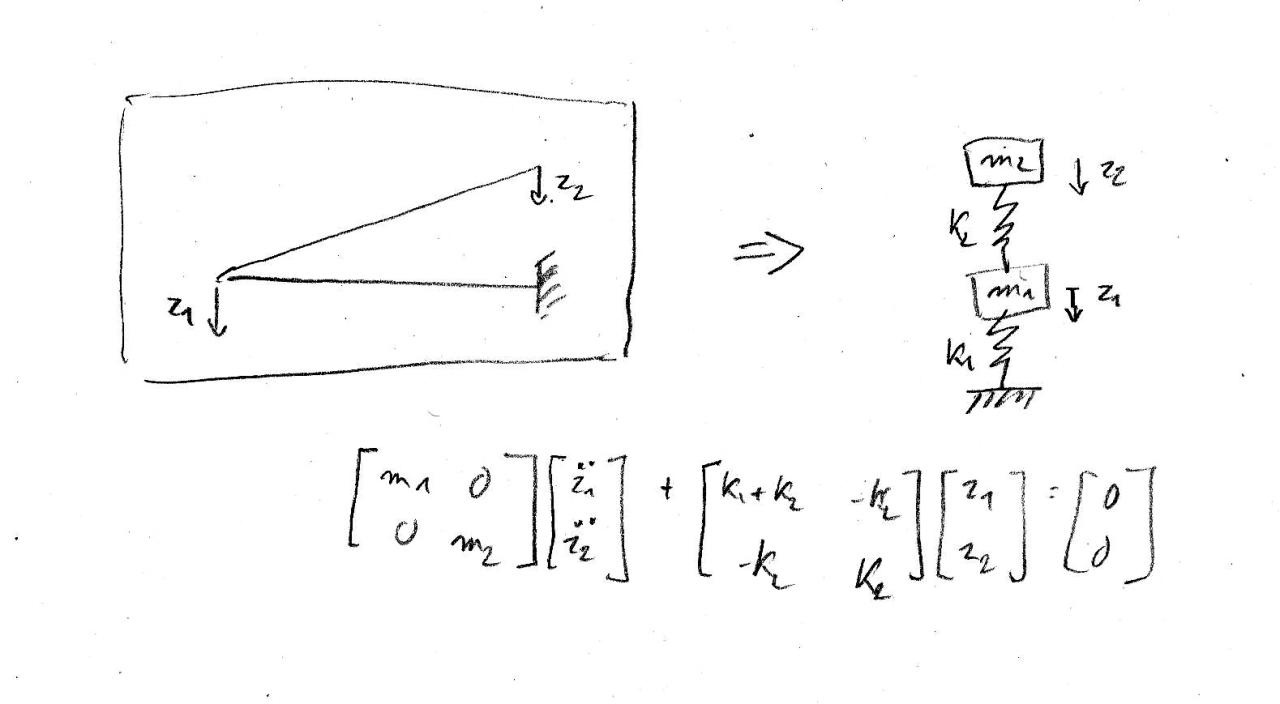 m2 z2
z2
k2
⇒
m1 z1
z1
k1
[m1 0; 0 m2] [z̈1; z̈2] + [k1+k2 -k2; -k2 k2] [z1; z2] = [0; 0]